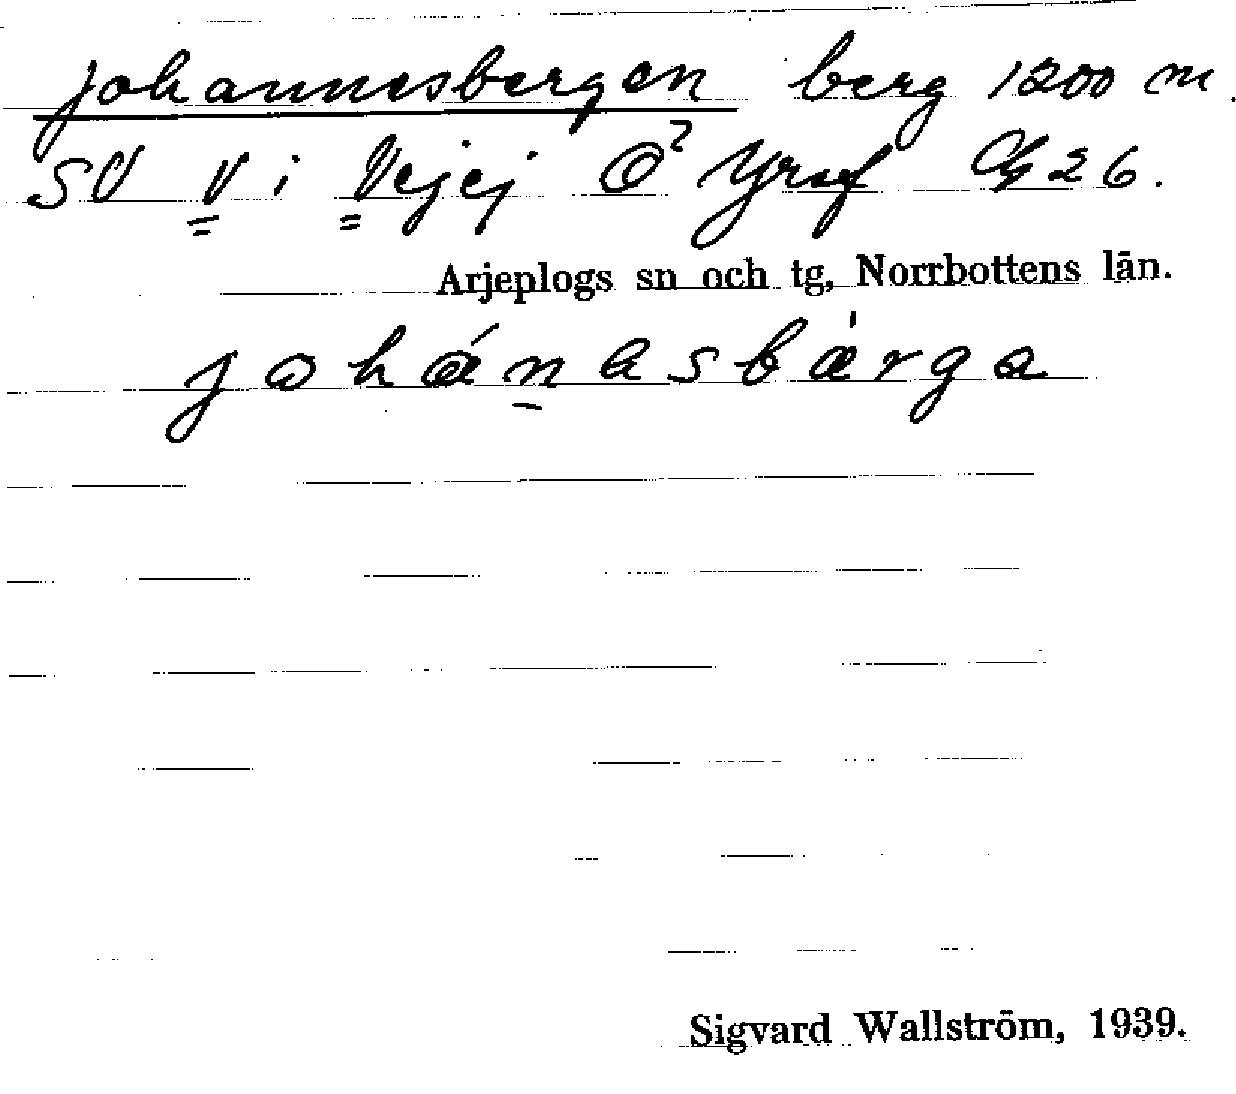 Johannesbergen berg 1200 m.
SV V i Vejej
Arjeplogs sn och tg, Norrbottens län.
johánasbárga
Sigvard Wallström, 1939.